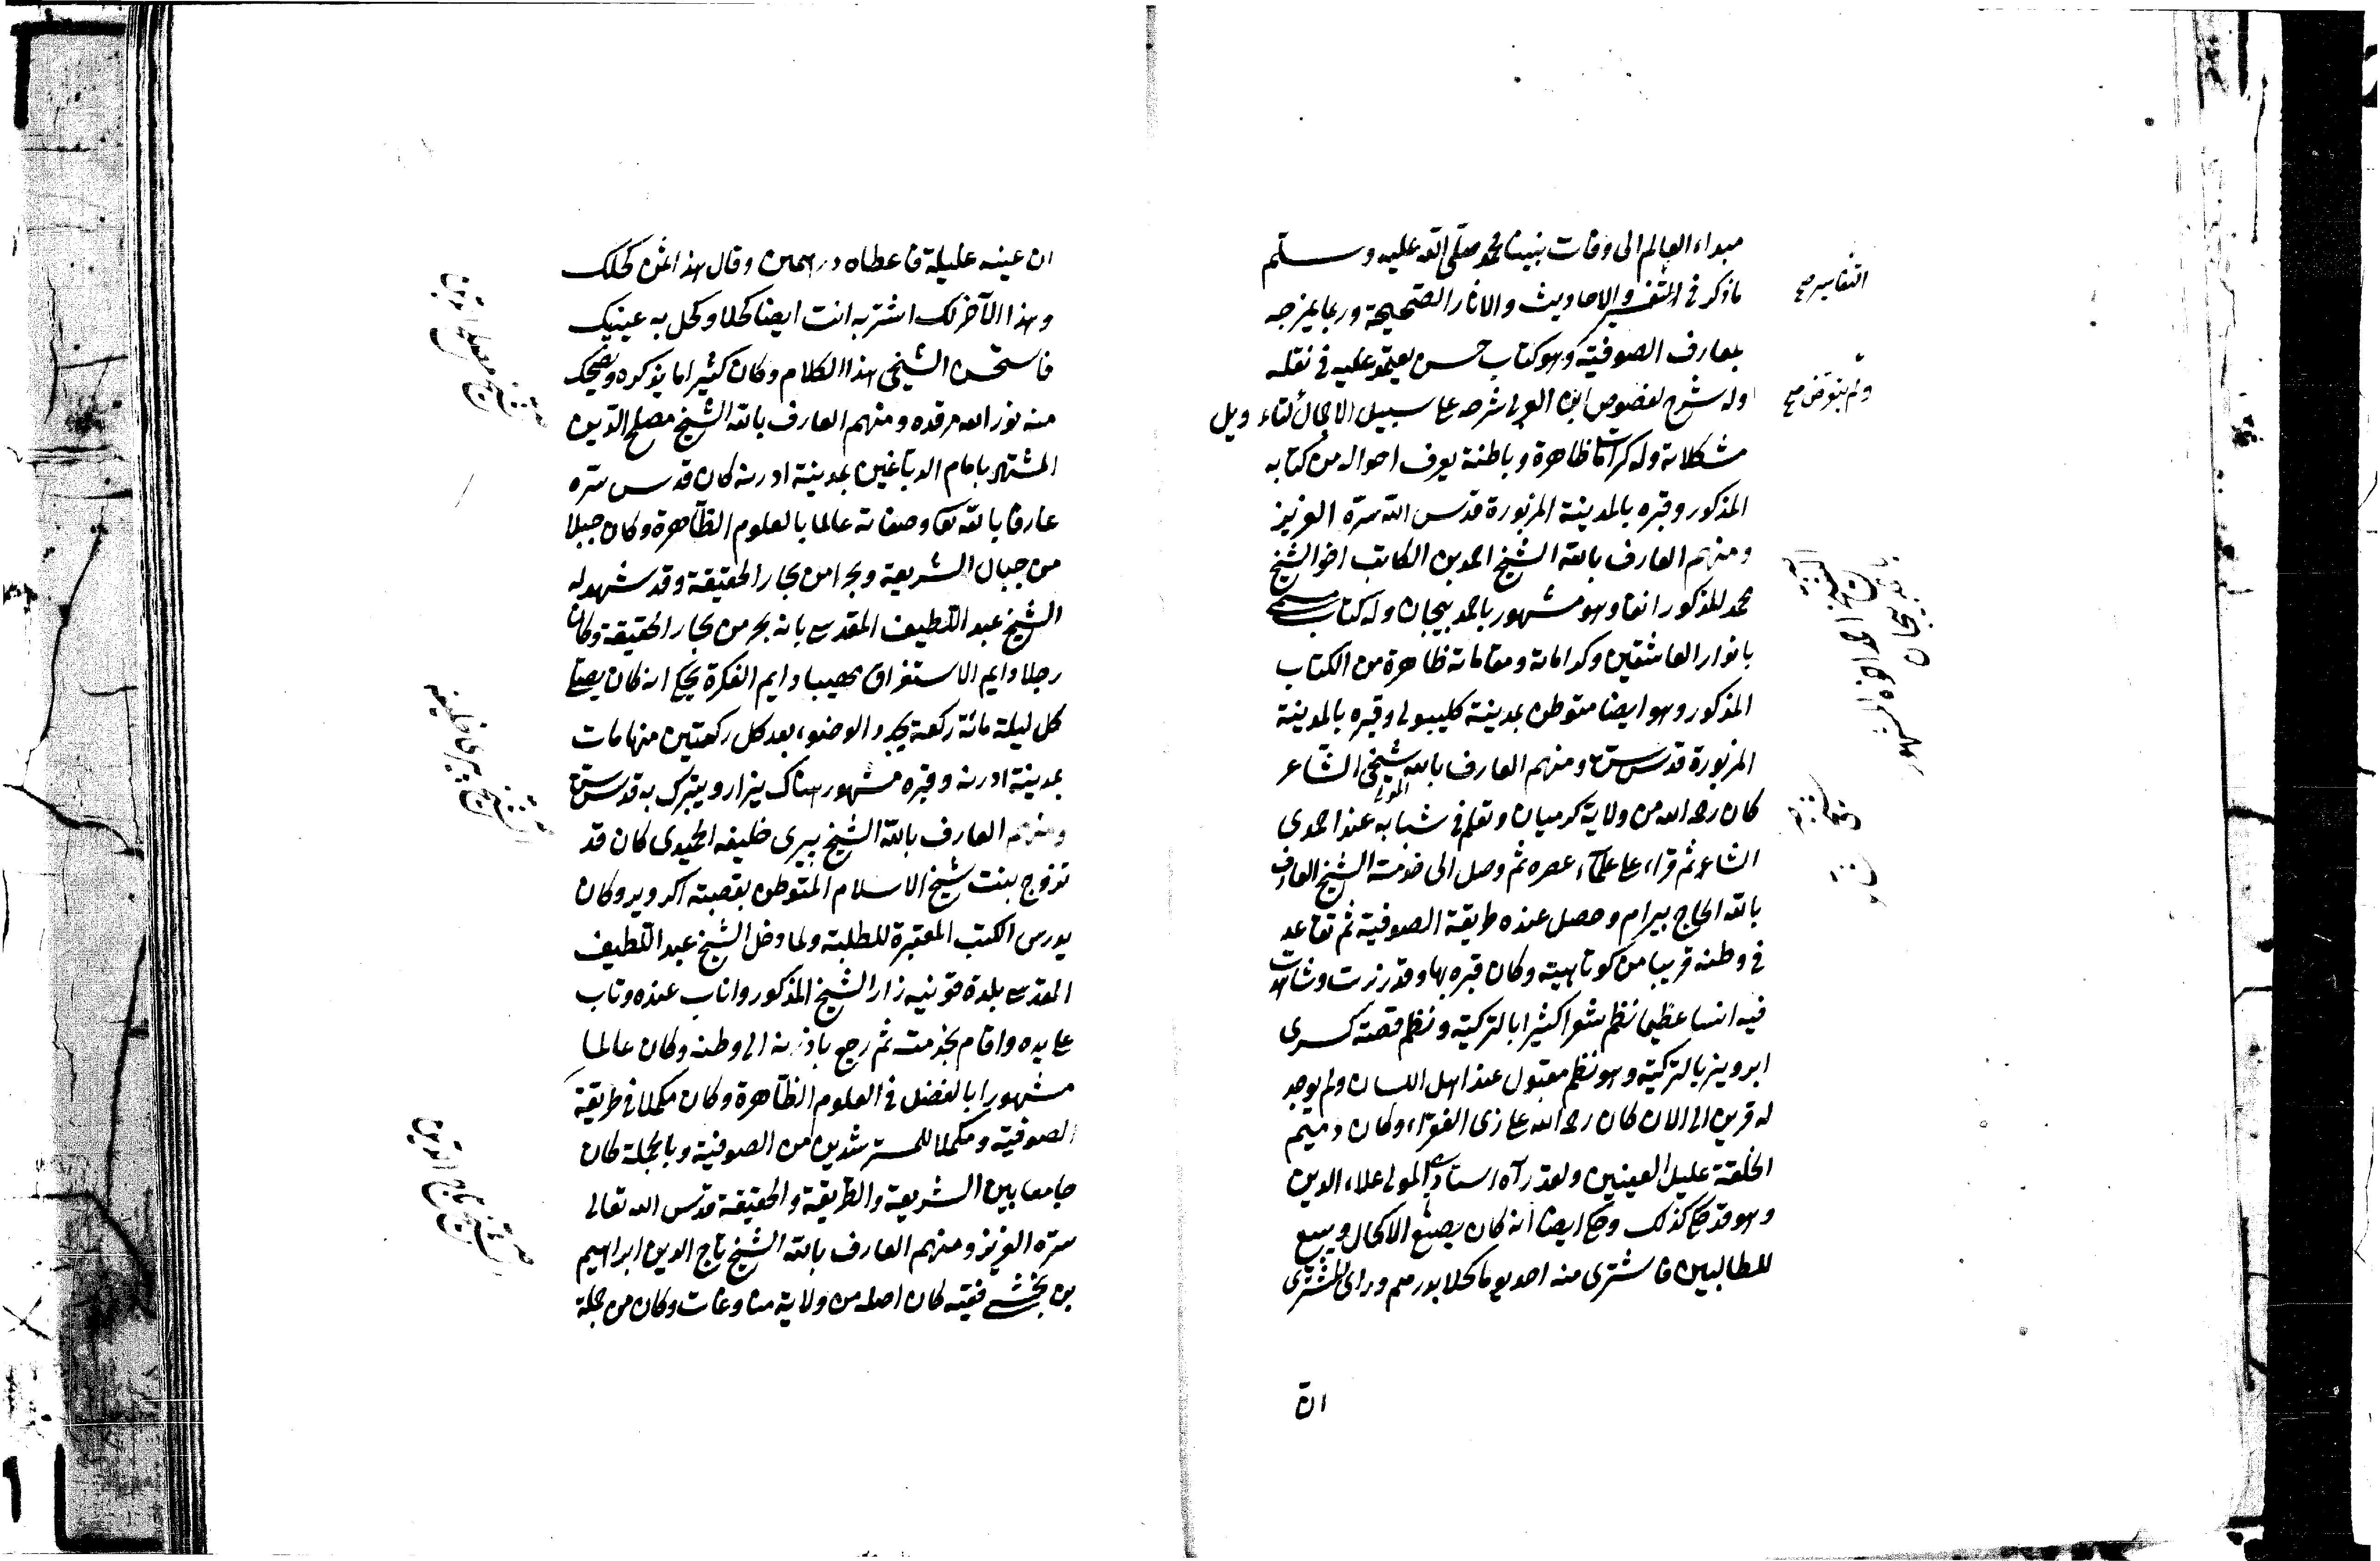 مبداء العالم الى وفات نبينا محمد صلّى الله عليه وسلّم
ما ذكر فى التفسير والاحاديث والاثار الصّحيحة وربما يمزجه
التفاسير صح
بمعارف الصوفية وهو كتاب حسن يعتمد عليه فى نقله
وله شرح لفصوص ابن العربى شرحه على سبيل الاجمال لتاءويل
ولم يتعرض صح
مشكلاته وله كرامات ظاهرة وباطنة يعرف احواله من كتابه
المذكور وقبره بالمدينة المزبورة قدس الله سرّه العزيز
ومنهم العارف بالله الشيخ احمد بن الكاتب اخو الشيخ
محمد المذكور انفا وهو مشهور باحمد بيجان وله كتاب مسمى
بانوار العاشقين وكراماته ومقاماته ظاهرة من الكتاب
المذكور وهو ايضا متوطن بمدينة كليبولى وقبره بالمدينة
المزبورة قدس سره ومنهم العارف بالله المولى شيخى الشّاعر
كان رحمه الله من ولاية كرميان وتعلم فى شبابه عند احمدى
الشاعر ثم قراء على علماء عصره ثم وصل الى خدمة الشيخ العارف
بالله الحاج بيرام وحصل عنده طريقة الصوفية ثم تقاعد
فى وطنه قريبا من كوتاهية وكان قبره بها وقد زرت وشاهدت
فيه انسا عظيما نظم شعرا كثيرا بالتركية ونظم قصة كسرى
ابرويز بالتركية وهو نظم مقبول عند اهل اللسان ولم يوجد
له قرين الى الان كان رحمه الله على زى الفقراء وكان دميم
الخلقة عليل العينين ولقد رآه استادى المولى علاء الدين
وهو قد حكى كذلك وحكى ايضا انه كان يصنع الاكحال ويبيع
للطالبين فاشترى منه احد يوما كحلا بدرهم وراى المشترى
ان
ان عينه عليلة فاعطاه درهمين وقال هذا ثمن كحلك
وهذا الآخر لك اشتر به انت ايضا كحلا وكحل به عينيك
فاستحسن الشيخى هذا الكلام وكان كثيرا ما يذكره ويضحك
منه نور الله مرقده ومنهم العارف بالله الشيخ مصلح الدّين
الشيخ مصلح الدين
المشتهر بامام الدباغين بمدينة ادرنه كان قدس سرّه
عارفا بالله تعا وصفاته عالما بالعلوم الظّاهرة وكان جبلا
من جبال الشريعة وبحرا من بحار الحقيقة وقد شهد له
الشيخ عبد اللّطيف المقدسى بانه بحر من بحار الحقيقة وكان
رجلا دايم الاستغراق مهيبا دايم الفكرة يحكى انه كان يصلى
كل ليلة مائة ركعة يجدد الوضوء بعد كل ركعتين منها مات
بمدينة ادرنه وقبره مشهور هناك يزار ويتبرك به قدس سره
ومنهم العارف بالله الشيخ بيرى خليفه الحميدى كان قد
الشيخ بيرى خليفه
تزوج بنت شيخ الاسلام المتوطن بقصبة اكردير وكان
يدرس الكتب المعتبرة للطلبة ولما دخل الشيخ عبد اللّطيف
المقدسى بلدة قونيه زار الشيخ المذكور واناب عنده وتاب
على يده واقام بخدمته ثم رجع باذنه الى وطنه وكان عالما
مشهورا بالفضل فى العلوم الظّاهرة وكان مكملا فى طريقة
الصوفية ومكملا للمسترشدين من الصوفية وبالجملة كان
جامعا بين الشريعة والطريقة والحقيقة قدس الله تعالى
سرّه العزيز ومنهم العارف بالله الشيخ تاج الدين ابراهيم
الشيخ تاج الدين
بن بخشى فقيه كان اصله من ولاية منتوغات وكان من جملة